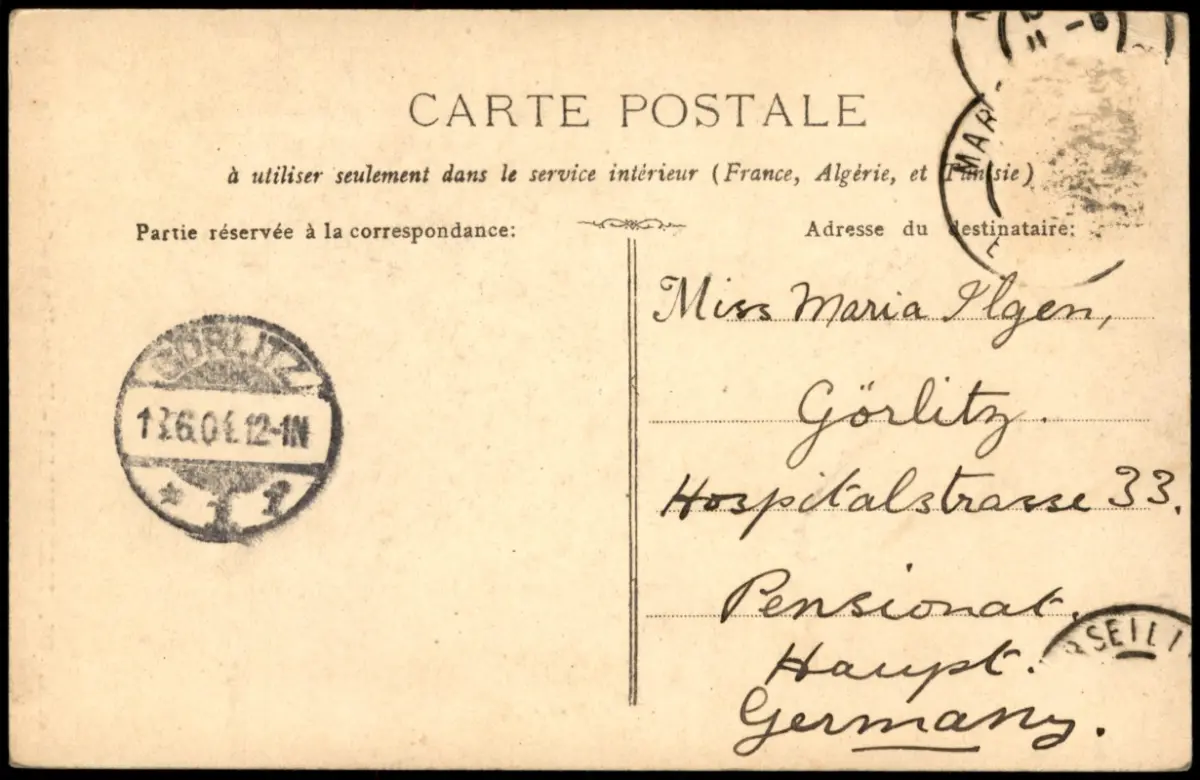 CARTE POSTALE
à utiliser seulement dans le service intérieur (France, Algérie, et Tunisie)
Partie réservée à la correspondance:
Adresse du destinataire:
Miss Maria Ilgen,
Görlitz.
Hospitalstrasse 33.
Pensionat.
Haupt.
Germany.
GÖRLITZ
12-1N
MAR
RSEILL